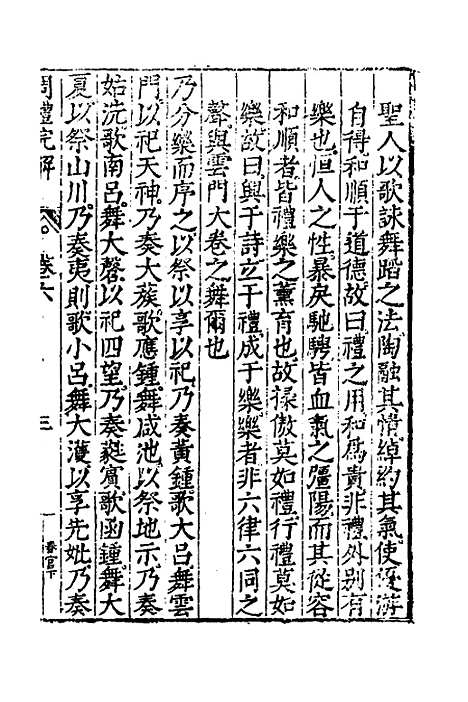 聖人以歌詠舞蹈之法陶融其情綽約其氣使優游
自得和順于道德故曰禮之用和爲貴非禮外別有
樂也但人之性暴戾馳騁皆血氣之彊陽而其從容
和順者皆禮樂之薰育也故祿傲莫如禮行禮莫如
樂故曰興于詩立于禮成于樂樂者非六律六同之
聲與雲門大卷之舞爾也
乃分樂而序之以祭以享以祀乃奏黃鍾歌大呂舞雲
門以祀天神乃奏大蔟歌應鍾舞咸池以祭地示乃奏
姑洗歌南呂舞大磬以祀四望乃奏蕤賓歌函鍾舞大
夏以祭山川乃奏夷則歌小呂舞大濩以享先妣乃奏
周禮完解 卷六 三 春官下